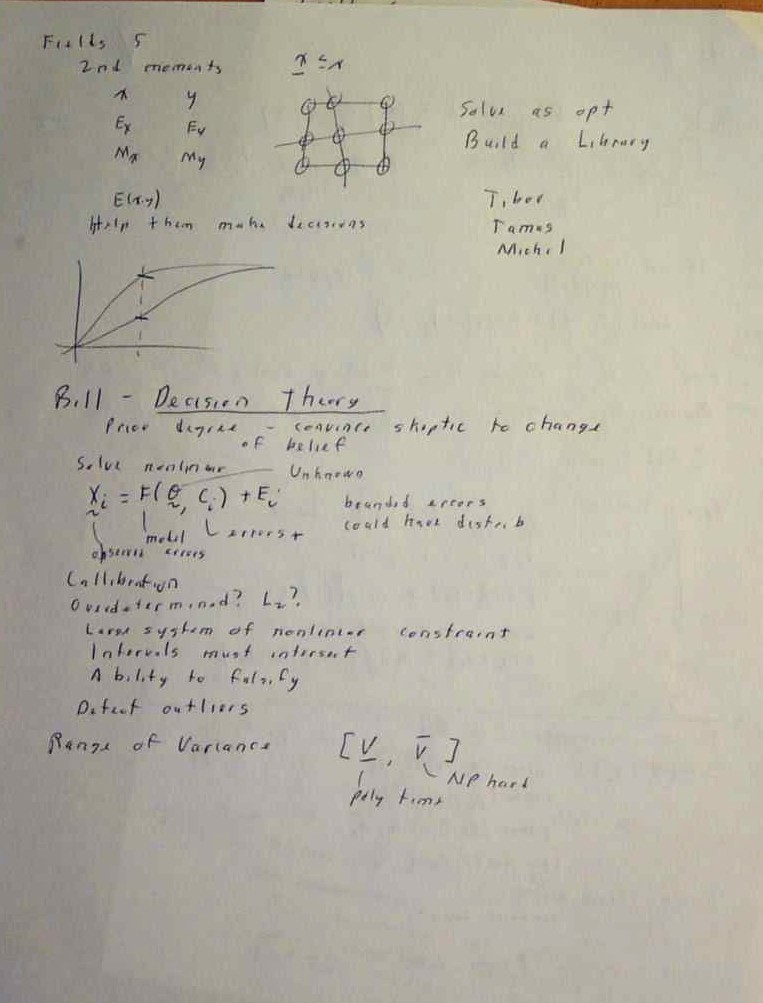 Fields 5
2nd moments
x ≤ x
x y
Ex Ey
Mx My
E(x·y)
Help them make decisions
Solve as opt
Build a Library
Tibor
Tamas
Michel
Bill - Decision Theory
Prior degree - convince skeptic to change
of belief
Solve nonlinear Unknown
Xi = F(θ, Ci) + Ei
model errors +
observed errors
bounded errors
could have distrib
Callibration
Overdetermined? L2?
Large system of nonlinear constraint
Intervals must intersect
Ability to falsify
Detect outliers
Range of Variance [V, V̄]
poly time
NP hard